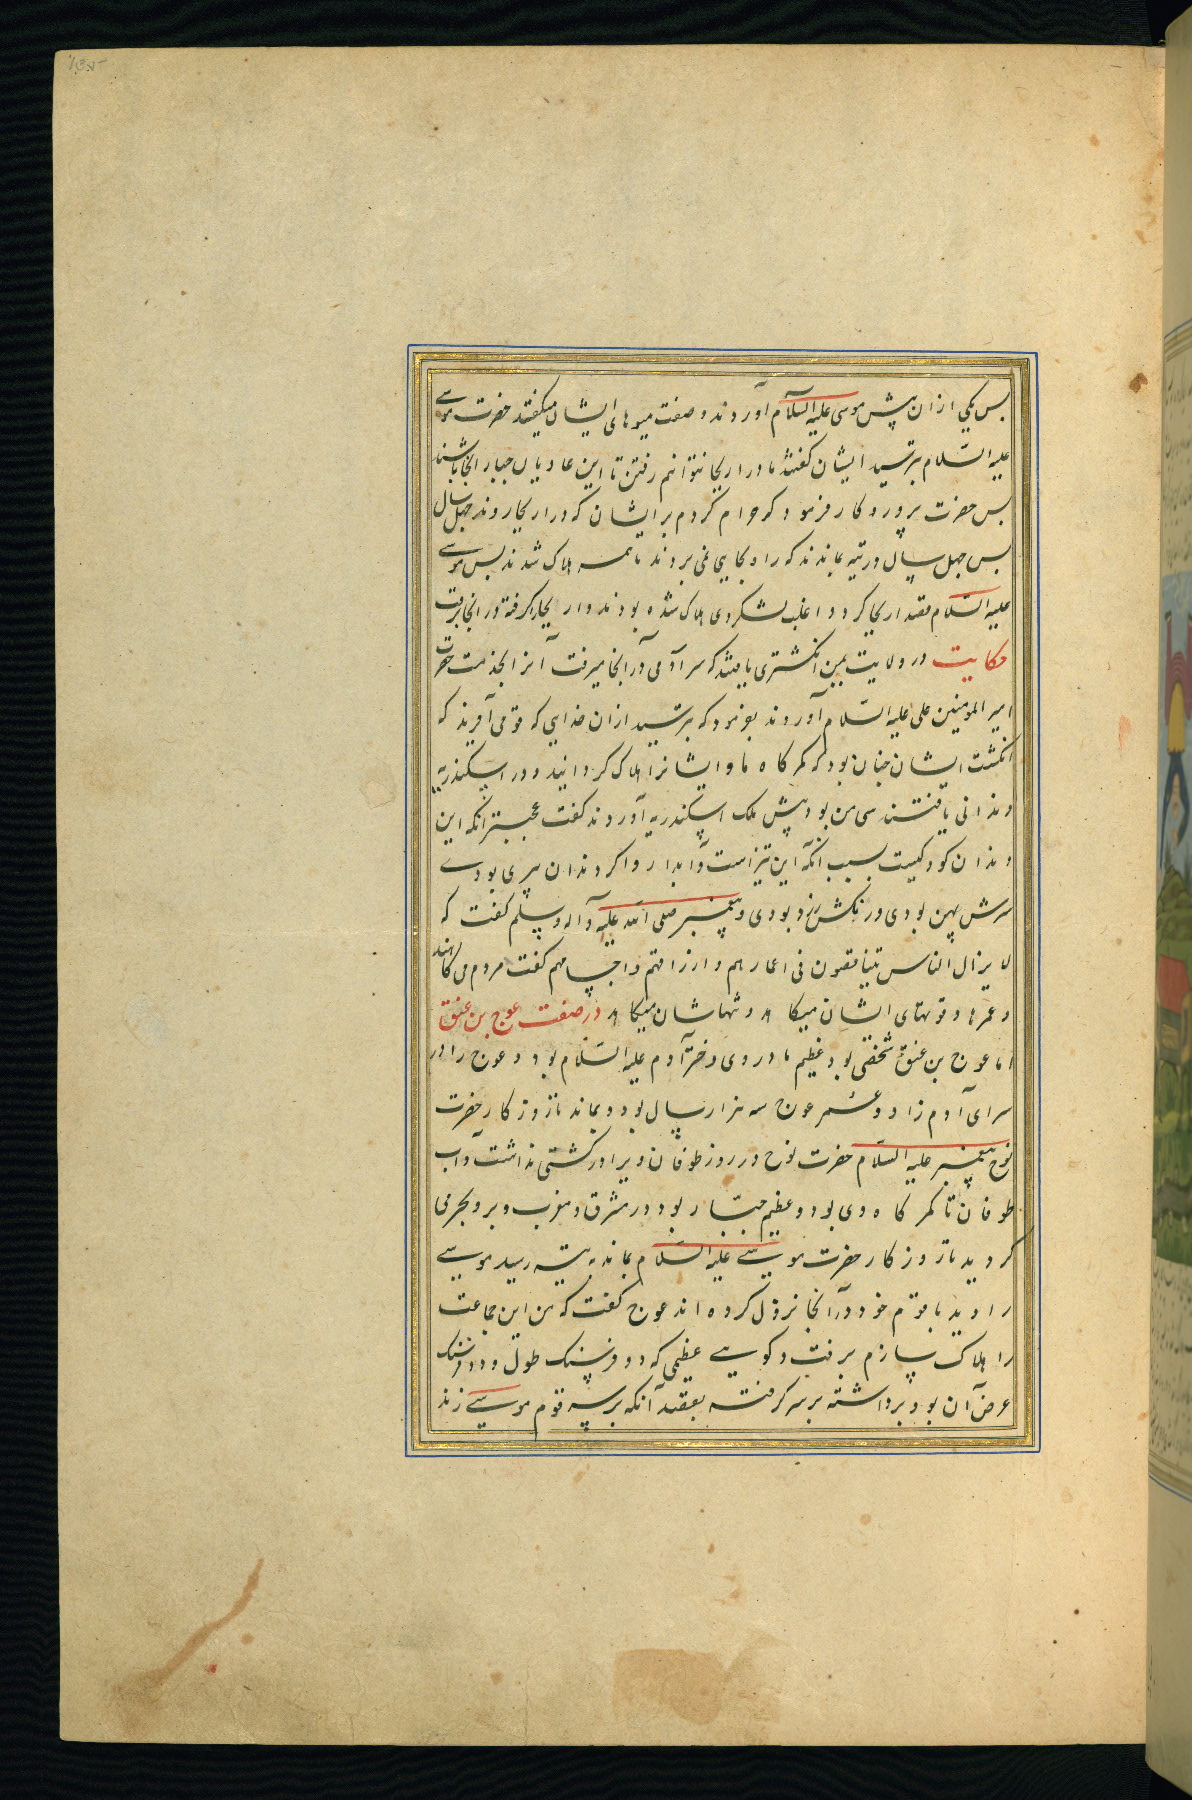 پس یکی ازان پیش موسی علیه السلام آوردند و صفت میوهای ایشان میگفتند حضرت موسی
علیه السّلام بترسید ایشان گفتند ما در اریحا نتوانیم رفتن تا این عادیان جبار انجا باشند
پس حضرت پروردکار فرمود که حرام کردم بر ایشان که در اریحا روند چهل سال
پس چهل سال در تیه بماندند که راه بجایی نمی بردند تا همه هلاک شدند پس موسی
علیه السلام قصد اریحا کرد و اغلب لشکر وی هلاک شده بودند و اریحا را کرفته در انجا برفت
حکایت در ولایت یمن انکشتری یافتند که سر آدمی در آنجا میرفت آنرا بخدمت حضرت
امیر المومنین علی علیه السّلام آوردند بفرمود که بترسید ازان خدایی که قومی آفرید که
انکشت ایشان چنان بود که کمرکاه ما و ایشانرا هلاک کردانید و در اسکندریه
دندانی یافتند سی من بود پیش ملک اسکندریه آوردند کفت عجبتر انکه این
دندان کودکیست بسبب انکه این تیز است و ابدار و اکر دندان پیری بودی
سرش پهن بودی و رنکش زرد بودی و پیغمبر صلی الله علیه و آله و سلم کفت که
لا یزال الناس یتناقصون فی اعمارهم و ارزاقهم و اجسامهم کفت مردم می کاهند
و عمرها و قوتهای ایشان میکاهد و تنهاشان میکاهد در صفت عوج بن عنق
اما عوج بن عنق شخصی بود عظیم مادر وی دختر آدم علیه السّلام بود و عوج را در
سرای آدم زاد و عمر عوج سه هزار سال بود و بماند تا روزکار حضرت
نوح پیغمبر علیه السّلام حضرت نوح در روز طوفان ویرا در کشتی نداشت و آب
طوفان تا کمرکاه وی بود و عظیم جبّار بود در مشرق و مغرب و بر و بحر می
کردید تا روزکار حضرت موسی علیه السّلام بماند به تیه رسید موسی
را دید با قوم خود در آنجا نزول کرده اند عوج کفت که من این جماعت
را هلاک سازم برفت و کوهی عظیمی که دو فرسنک طول و دو فرسنک
عرض آن بود برداشته بر سر کرفته بقصد آنکه بر سر قوم موسی زند